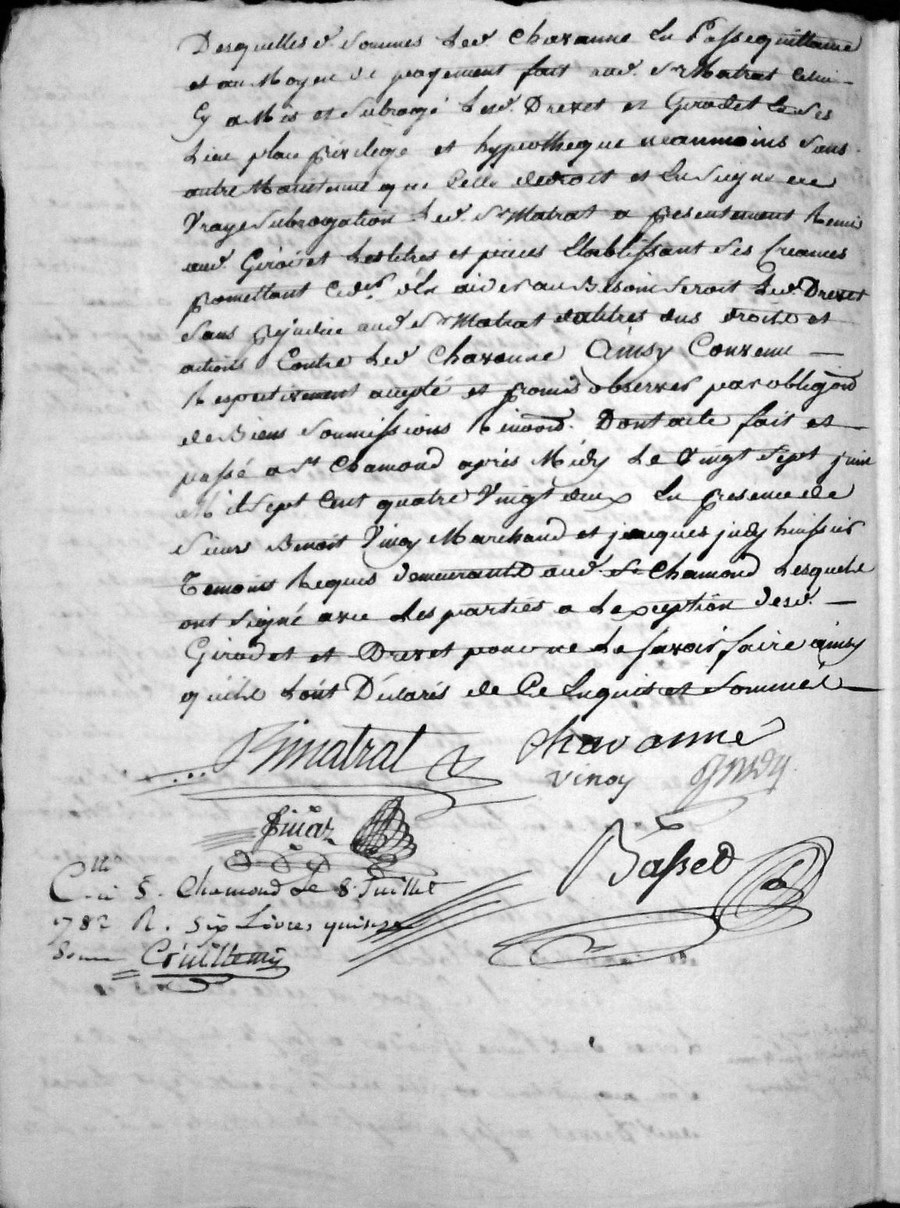 Desquelles d. Sommes Led. Chavanne En Passe quittance
et au Moyen de payement fait aud. Sr. Matrat Celui
Cy a Mis et Subrogé Lesd. Drevet et Girodet Ses
Lieu place privilege et hypotheque neanmoins Sans
autre Maintenue que Celle dedroit et En Signe de
Vraye Subrogation Led. Sr. Matrat a presentement Remis
aud. Girodet Les titres et pieces Etablissant Ses Creances
promettant d'En aider au Besoin Seroit Led. Drevet
Sans prejudice aud. Sr. Matrat dautres dus droits et
actions Contre Led. Chavanne Ainsy Convenu
Respectivement accepté et promis observer par obligaon
de Biens Soumissions Renoaon. Dont acte fait et
passé a St. Chamond après Midy Le Vingt Sept juin
Mil Sept Cent quatre Vingt deux En presence de
Sieur Benoit Vinoy Marchand et jacques judy huissier
Temoins Requis demeurants aud. St. Chamond Lesquels
ont Signé avec Les parties a Lexception desd.
Girodet et Drevet pour ne Le Savoir faire ainsy
qu'ils L'ont Déclarés de Ce Enquis et Sommés
Matrat Chavanne
Vinoy Judy
Finaz
Basset
Clle
à S. Chamond Le 8. Juillet
1782 R. Six Livres quinze
Sous